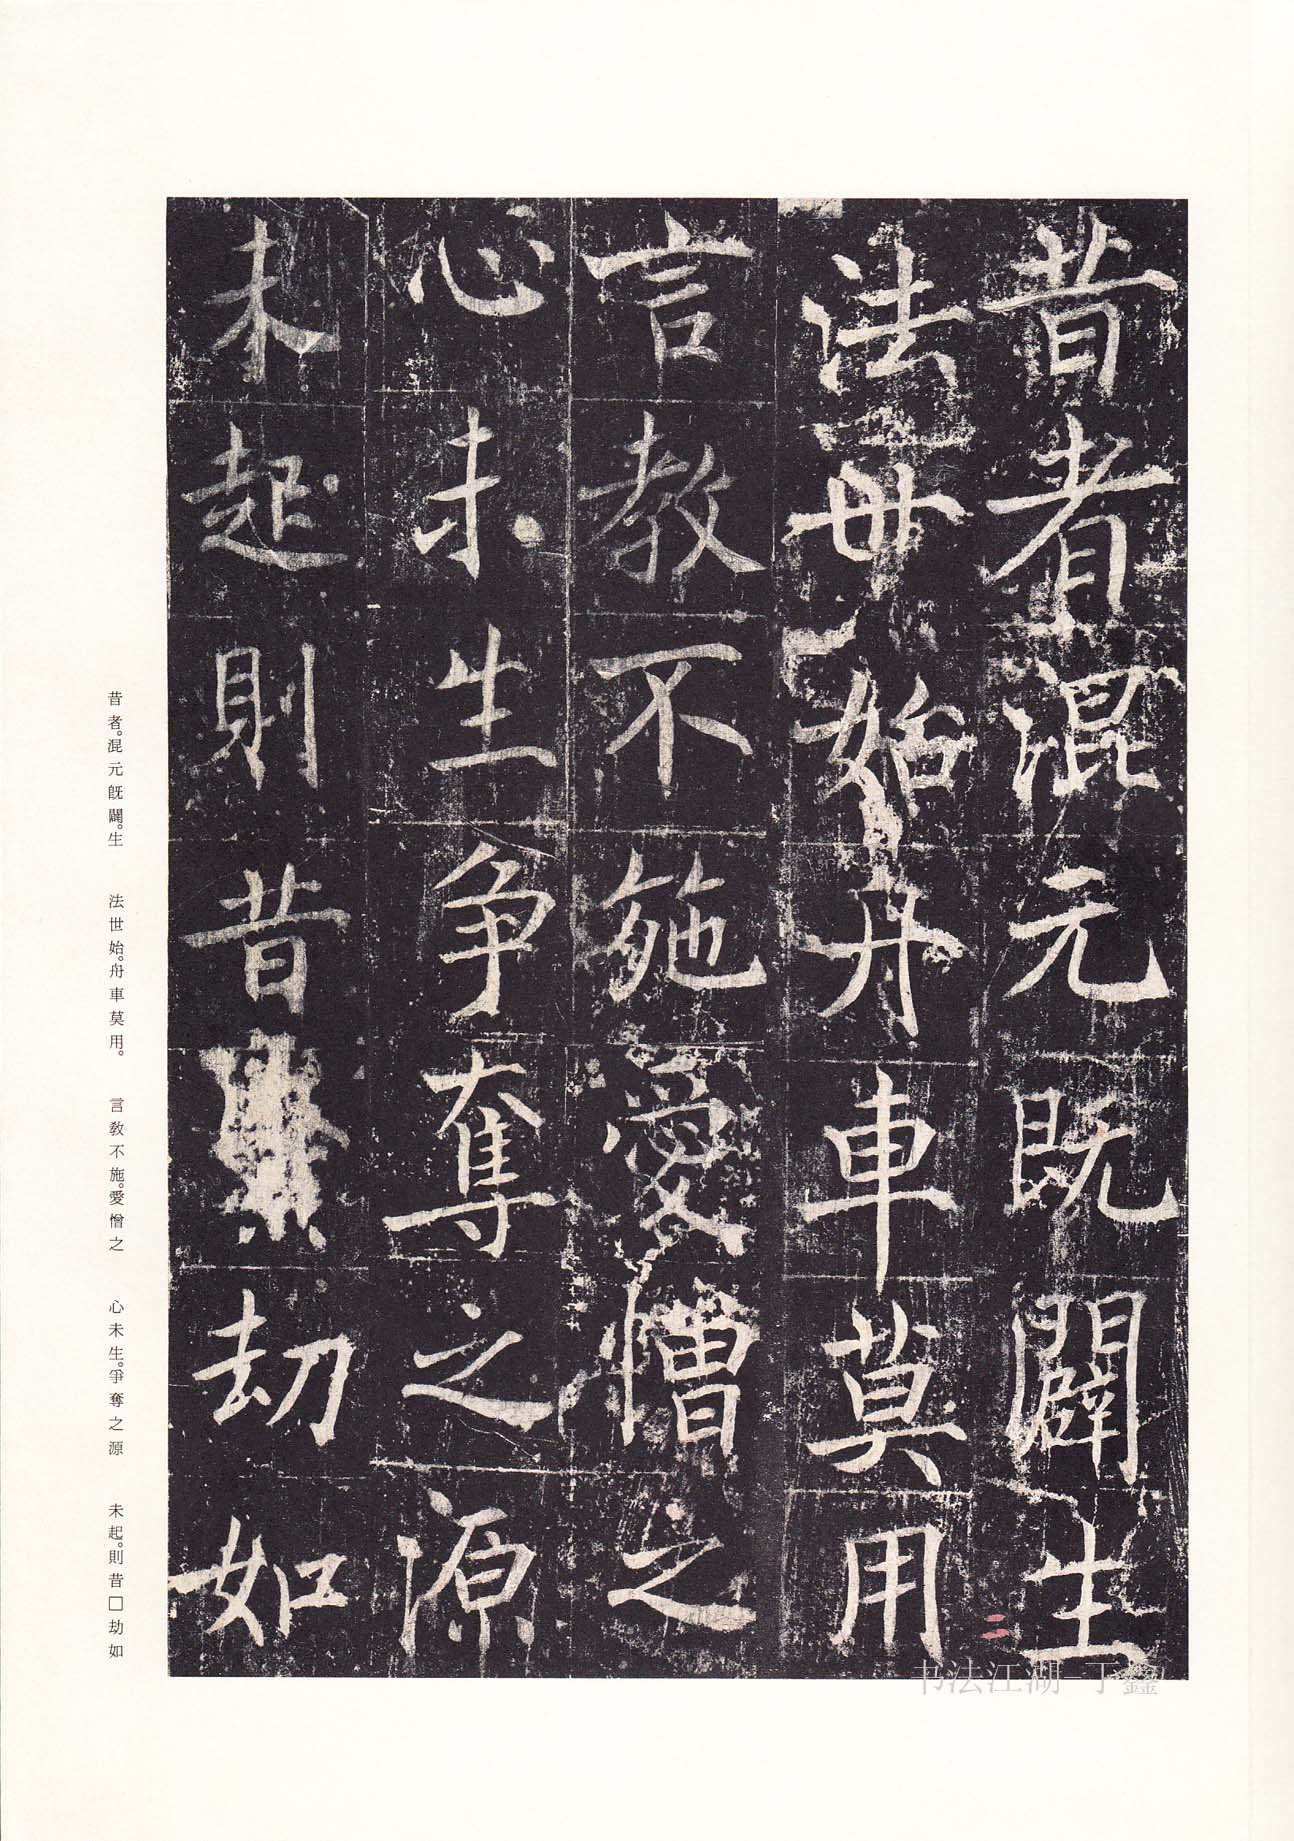 昔者混元既闢生
法世始舟車莫用
言教不施愛憎之
心未生爭奪之源
未起則昔劫如
昔者。混元既闢。生
法世始。舟車莫用。
言教不施。愛憎之
心未生。爭奪之源
未起。則昔□劫如
书法江湖-丁鑫